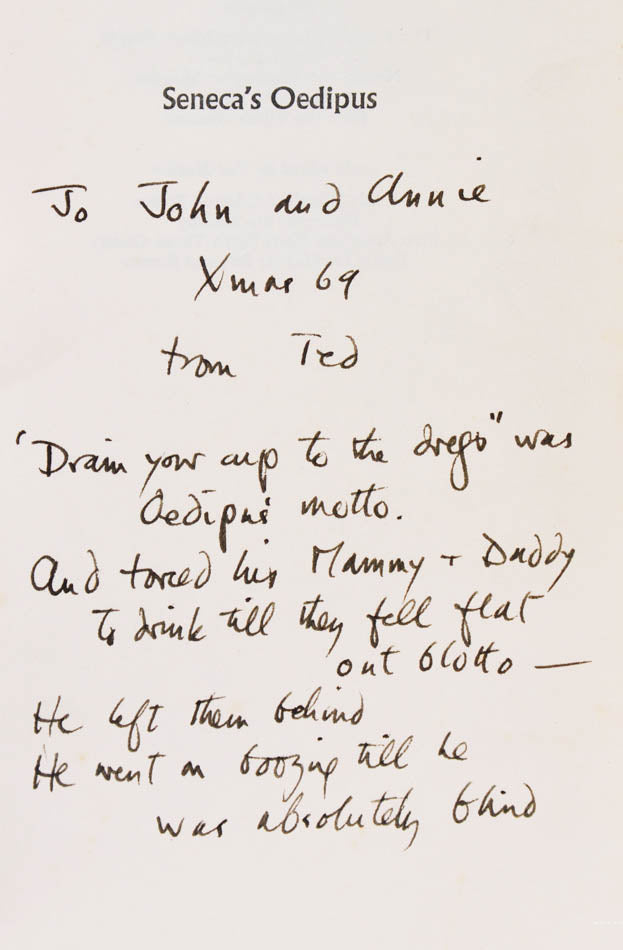 Seneca's Oedipus
To John and Annie
Xmas 69
from Ted
'Drain your cup to the dregs" was
Oedipus' motto.
And forced his Mammy + Daddy
to drink till they fell flat
out blotto —
He left them behind
He went on boozing till he
was absolutely blind